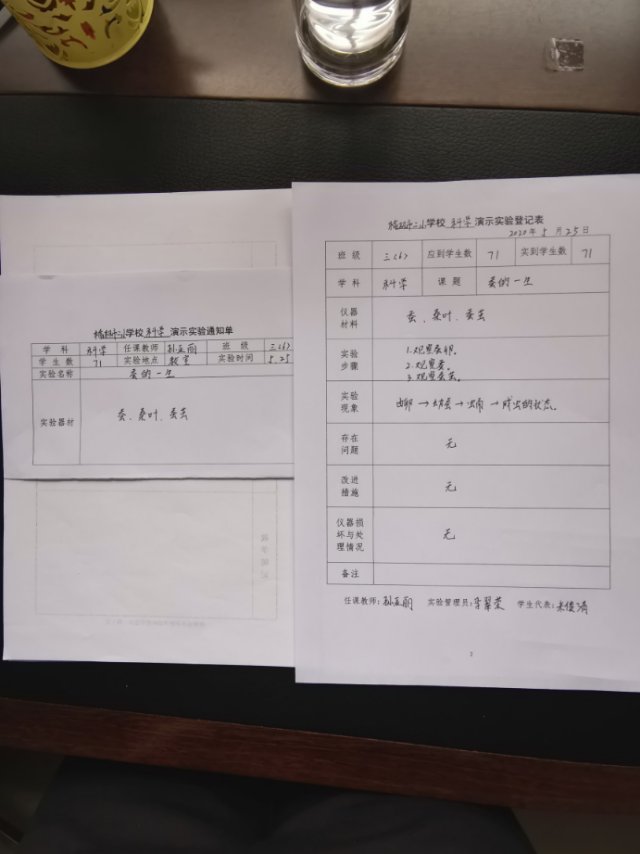 学校 科学 演示实验通知单
学科 科学 任课教师 孙孟丽 班级 三(6)
学生数 71 实验地点 教室 实验时间 5.25
实验名称 蚕的一生
实验器材 蚕、桑叶、蚕茧
学校 科学 演示实验登记表
2020年5月25日
班级 三(6) 应到学生数 71 实到学生数 71
学科 科学 课题 蚕的一生
仪器材料 蚕、桑叶、蚕茧
实验步骤 1.观察蚕卵。
2.观察蚕。
3.观察蚕茧。
实验现象 由卵→幼蚕→虫蛹→成虫的状态。
存在问题 无
改进措施 无
仪器损坏与处理情况 无
备注
任课教师: 实验管理员: 学生代表:
2